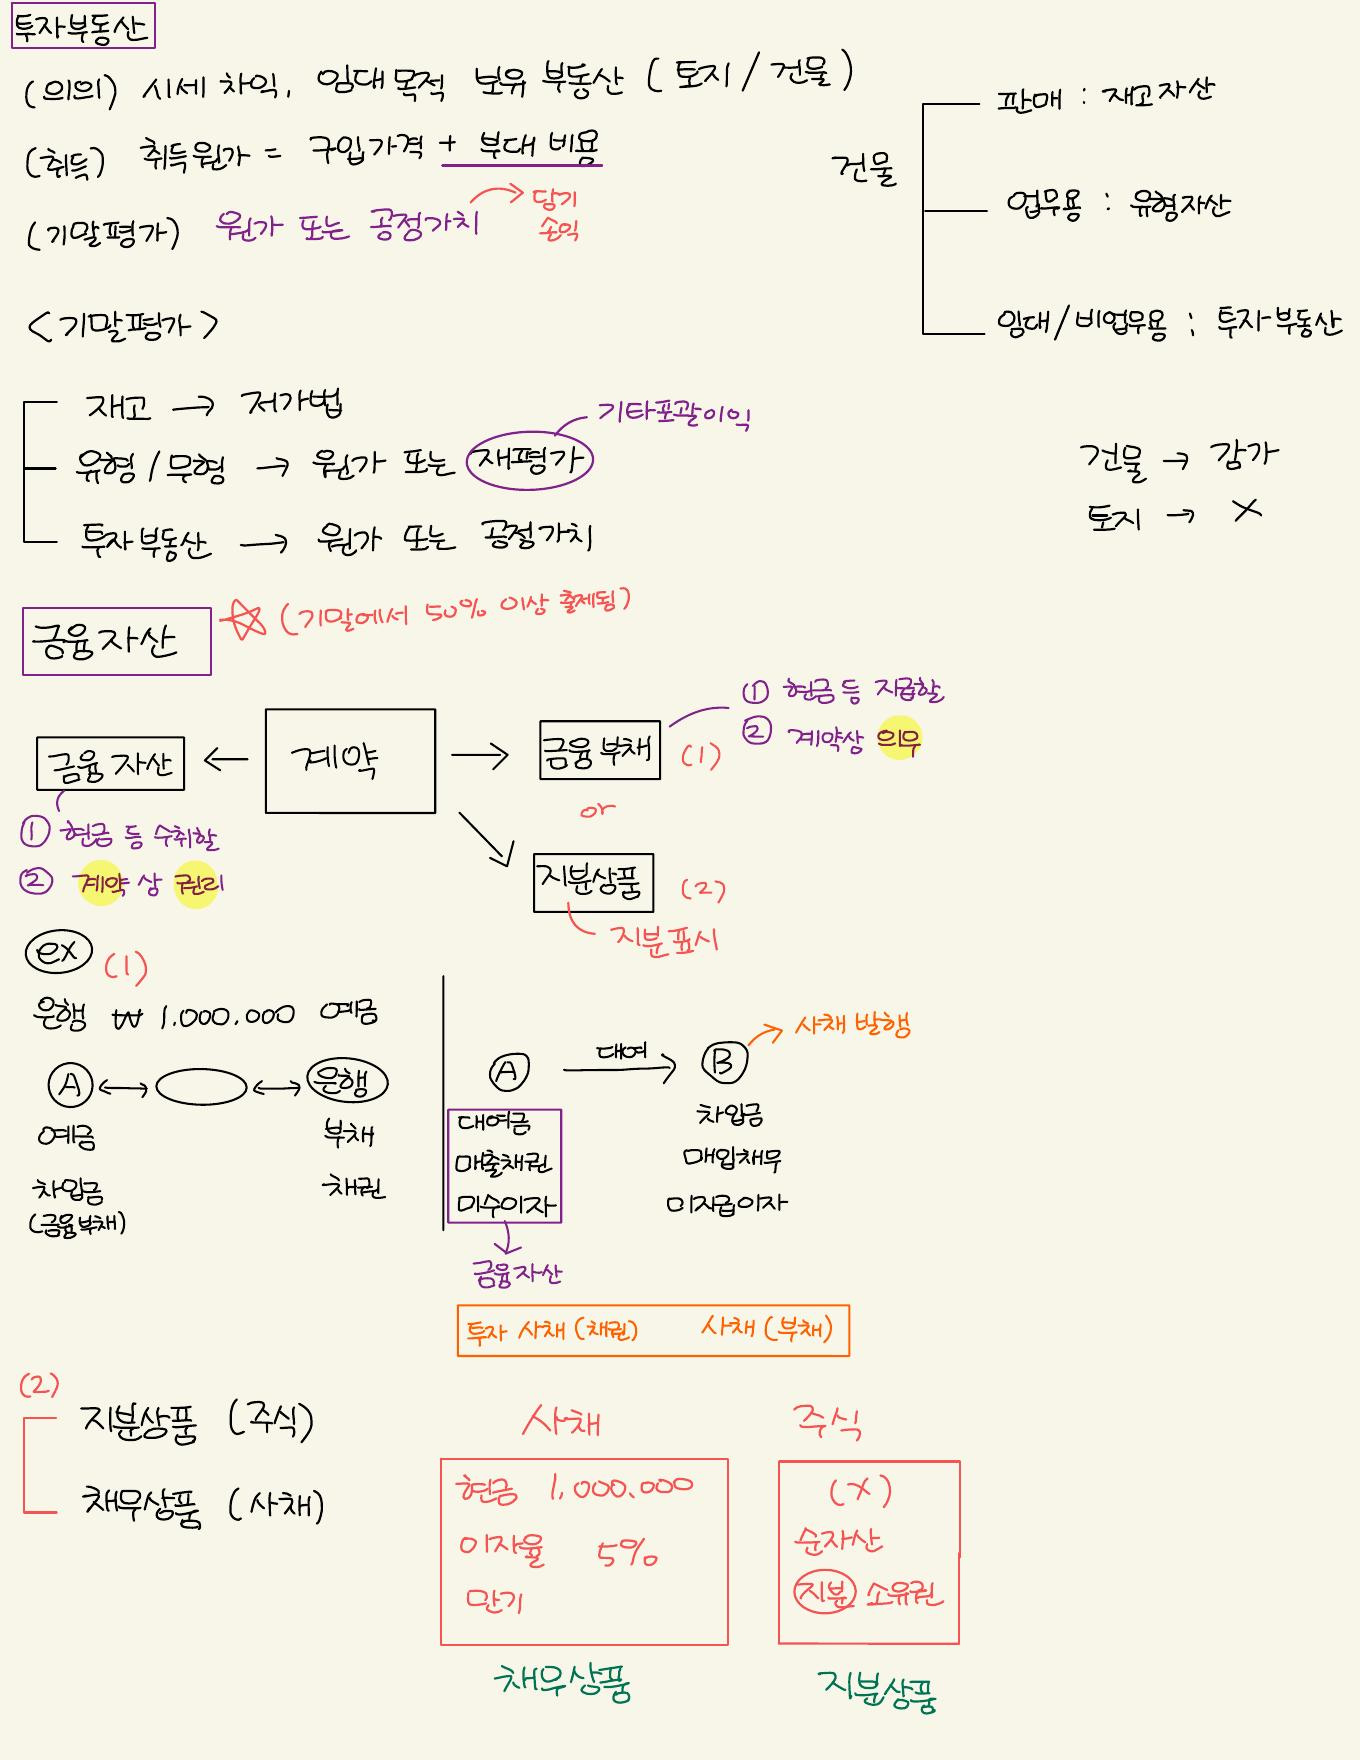 투자부동산
(의의) 시세 차익, 임대목적 보유 부동산 (토지 / 건물)
(취득) 취득원가 = 구입가격 + 부대 비용
(기말평가) 원가 또는 공정가치 → 당기
손익
건물
판매 : 재고자산
업무용 : 유형자산
임대/비업무용 : 투자부동산
<기말평가>
재고 → 저가법
유형/무형 → 원가 또는 재평가
기타포괄이익
투자부동산 → 원가 또는 공정가치
건물 → 감가
토지 → X
금융자산 ☆ (기말에서 50% 이상 출제됨)
금융 자산 ← 계약 → 금융부채 (1)
① 현금 등 지급할
② 계약상 의무
① 현금 등 수취할
② 계약 상 권리
or
지분상품 (2)
지분표시
ex (1)
은행 ₩ 1.000.000 예금
A ↔ ↔ 은행
예금 부채
차입금 채권
(금융부채)
A 대여 → B → 사채 발행
대여금 차입금
매출채권 매입채무
미수이자 미지급이자
금융자산
투자 사채 (채권) 사채 (부채)
(2)
지분상품 (주식)
채무상품 (사채)
사채
현금 1,000.000
이자율 5%
만기
채무상품
주식
(X)
순자산
지분 소유권
지분상품